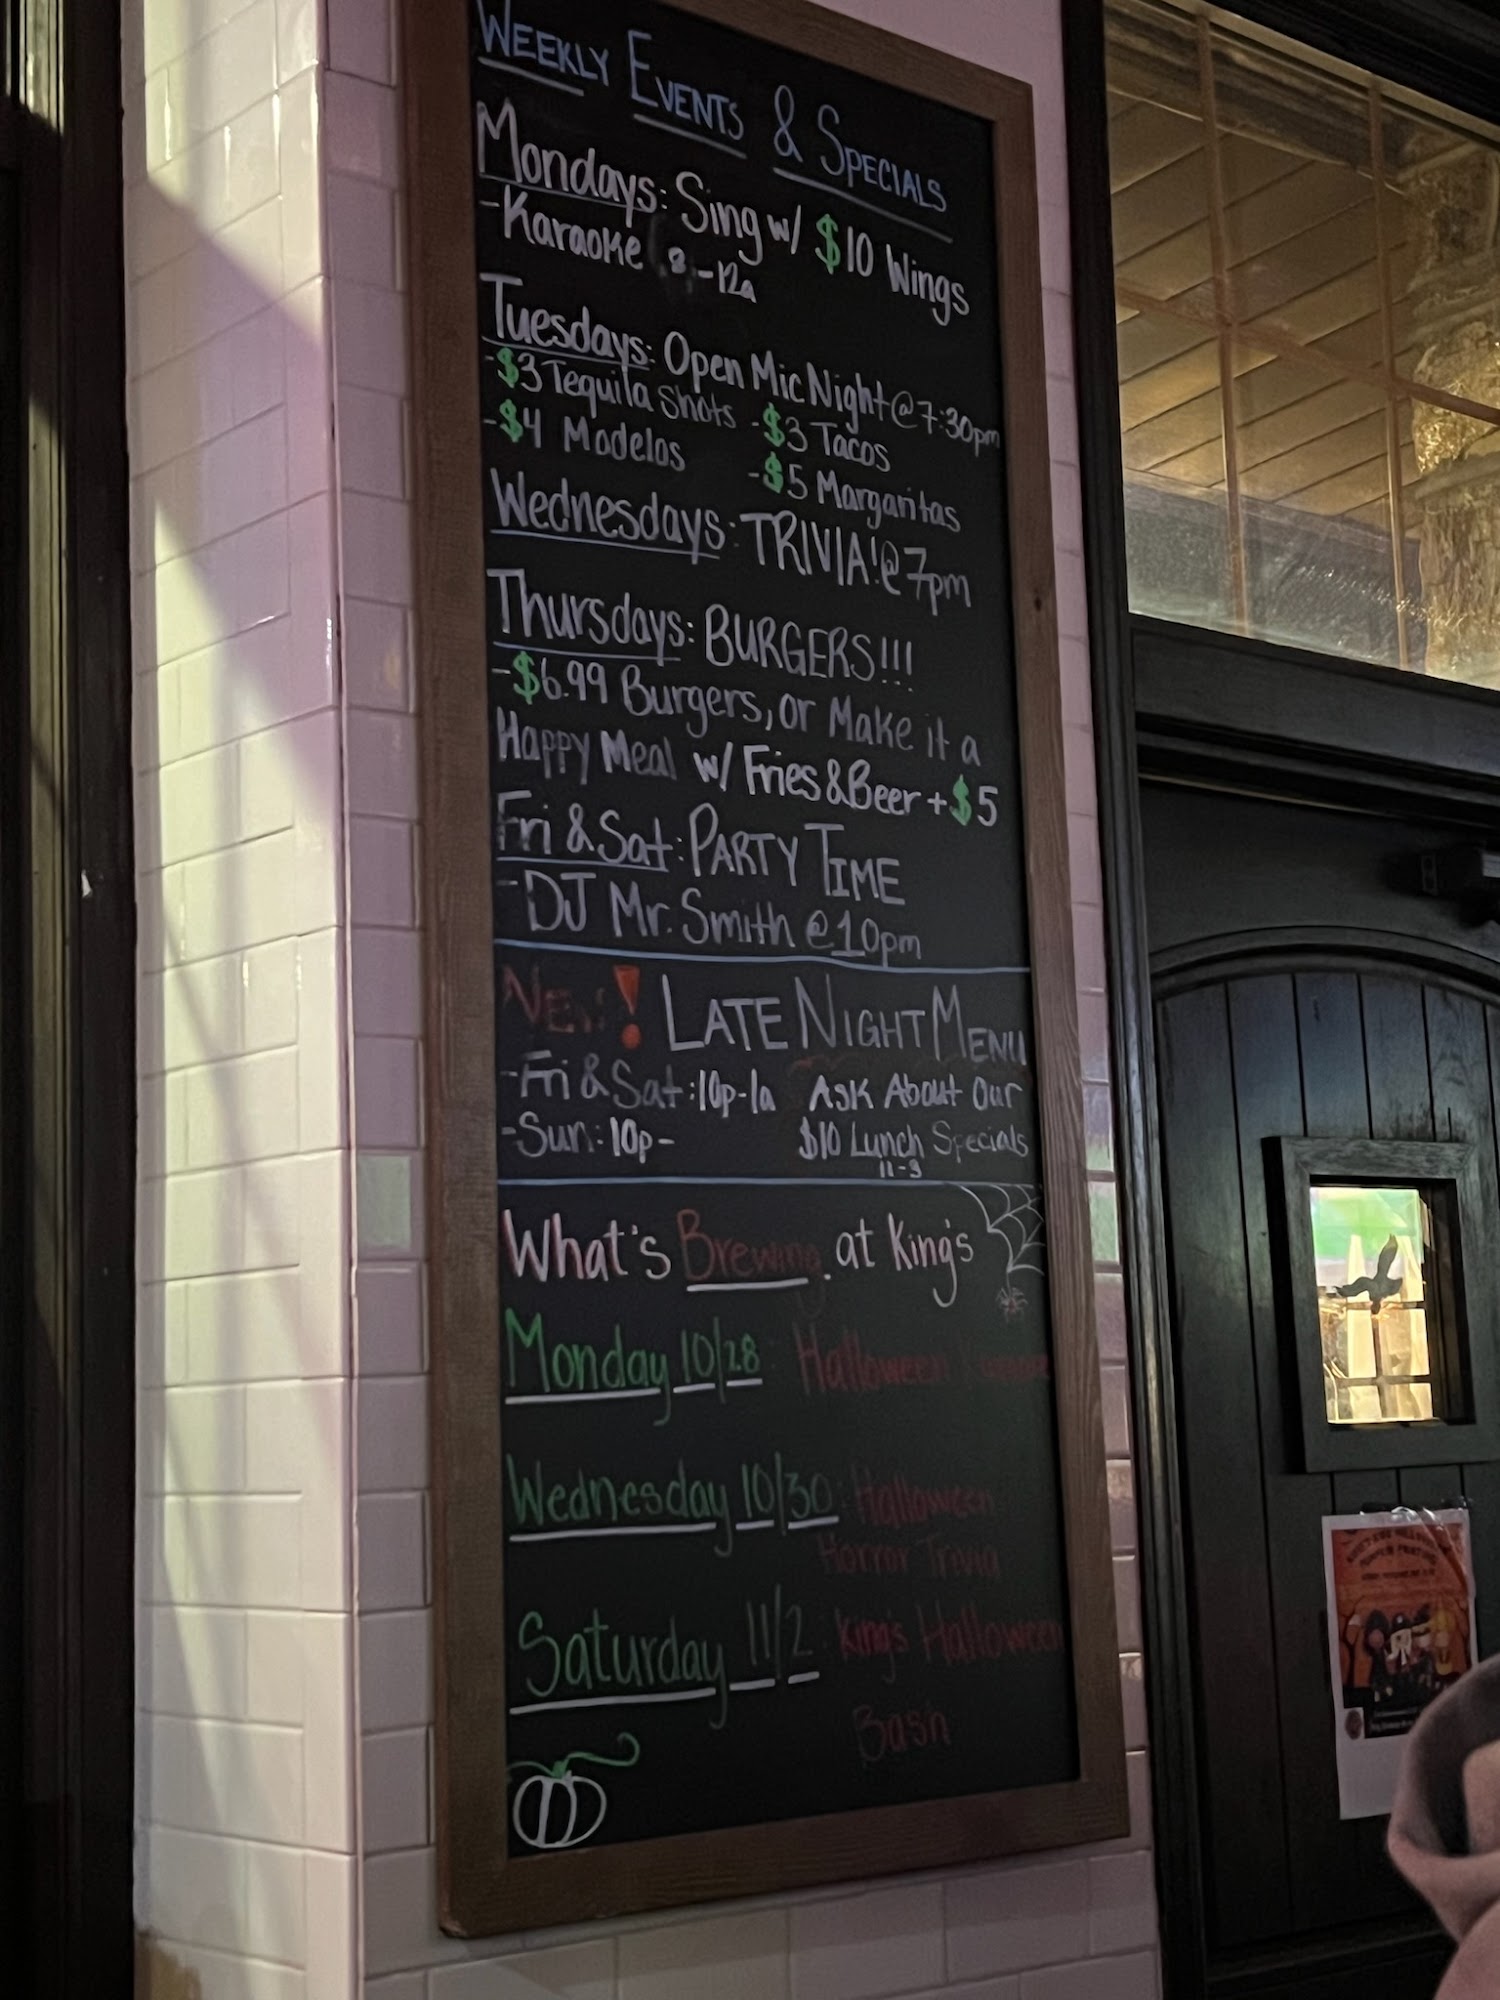 WEEKLY EVENTS & SPECIALS
Mondays: Sing w/ $10 Wings
-Karaoke 8-12a
Tuesdays: Open Mic Night @ 7:30pm
-$3 Tequila Shots -$3 Tacos
-$4 Modelos -$5 Margaritas
Wednesdays: TRIVIA! @ 7pm
Thursdays: BURGERS!!!
-$6.99 Burgers, or Make it a
Happy Meal w/ Fries & Beer + $5
Fri & Sat: PARTY TIME
-DJ Mr. Smith @ 10pm
New! LATE NIGHT MENU
-Fri & Sat: 10p-1a
-Sun: 10p-
Ask About Our
$10 Lunch Specials
11-3
What's Brewing at King's
Monday 10/28: Halloween
Wednesday 10/30: Halloween
Horror Trivia
Saturday 11/2: King's Halloween
Bash